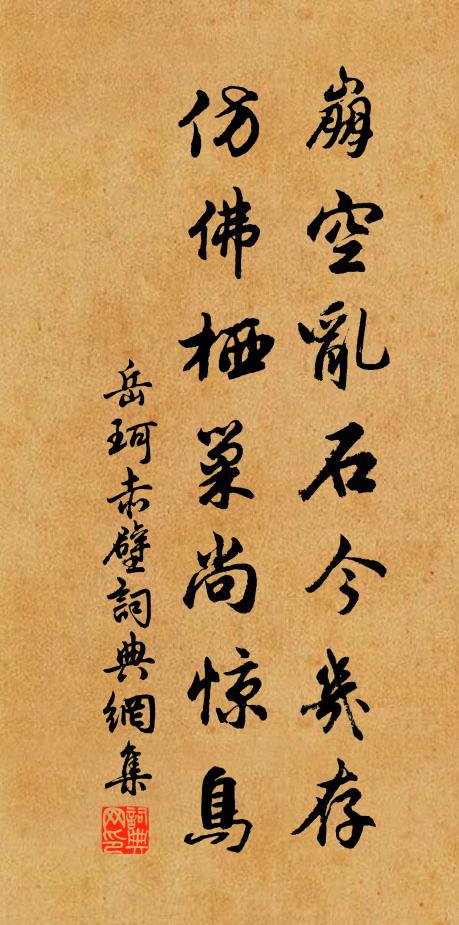 崩空亂石今幾存
仿佛栖巢尚惊鳥
岳珂赤壁詞典網集
詞典網印